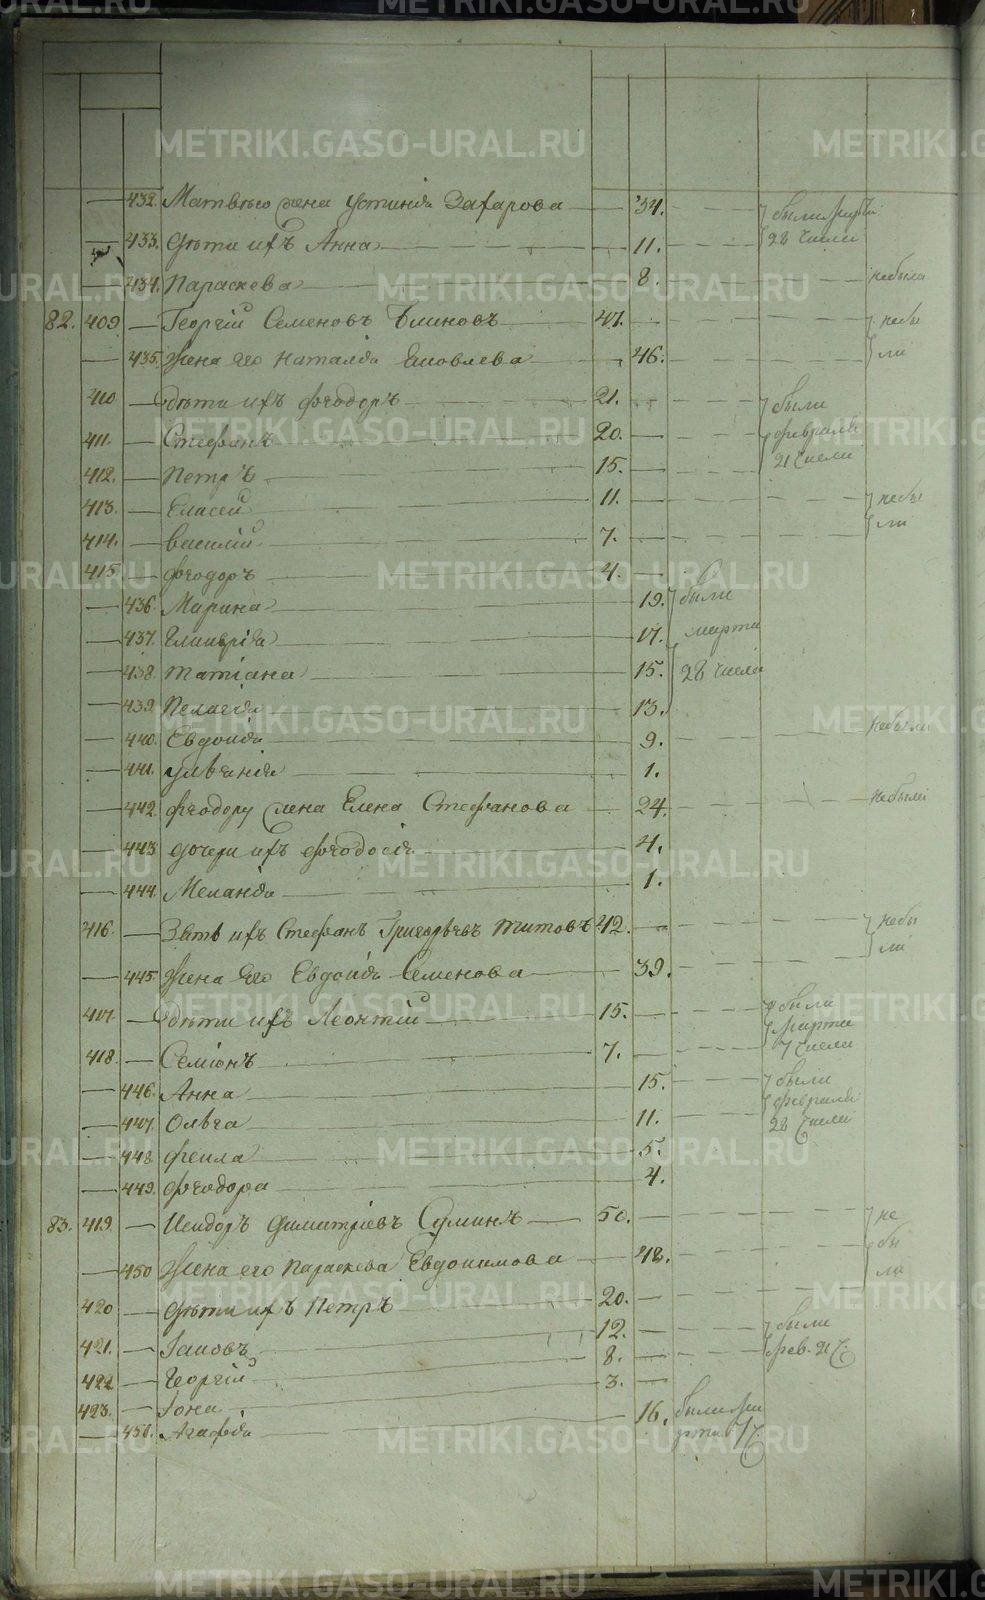 — 432. Матвѣю жена Устинія Захарова — 34. — — были мар
— 433. Дѣти ихъ Анна — 11. — — 28 числа
— 434. Параскева — 8. — — небыла
82. 409 — Георгій Семеновъ Блиновъ — 47. — — небы
— 435. Жена его Наталія Яковлева — 46. — — ли
410 — Дѣти ихъ Феодоръ — 21. — — были
411. — Стефанъ — 20. — — февраля
412. — Петръ — 15. — — 21 числа
413. — Елисей — 11. — — небы
414. — Василій — 7. — — ли
415 — Феодоръ — 4.
— 436. Марина — 19. были
— 437. Гликерія — 17. марта
— 438. Татіана — 15. 28 числа
— 439. Пелагія — 13.
— 440. Евдокія — 9. — — небыли
— 441. Ульянія — 1.
— 442. Феодору жена Елена Стефанова — 24. — — небыли
— 443. дочери ихъ Феодосія — 4.
— 444. Меланія — 1.
416. — Зять ихъ Стефанъ Григорьевъ Титовъ 42. — — небы
— 445. Жена его Евдокія Семенова — 39. — — ли
417. — Дѣти ихъ Леонтій — 15. — — были
марта
418. — Семіонъ — 7. — — 7 числа
— 446. Анна — 15. — — были
февраля
— 447. Ольга — 11. — — 28 числа
— 448. Фекла — 5.
— 449. Феодора — 4.
83. 419. — Исидоръ Димитріевъ Суминъ — 50. — — не
бы
— 450 Жена его Параскева Евдокимова — 48. — — ли
420 — Дѣти ихъ Петръ — 20. — — были
421. — Іаковъ — 12. — — фев. 21 ч.
422 — Георгій — 8. —
423. — Іона — 3. —
— 451. Агафія — 16. были ма
рта 7 ч.
METRIKI.GASO-URAL.RU